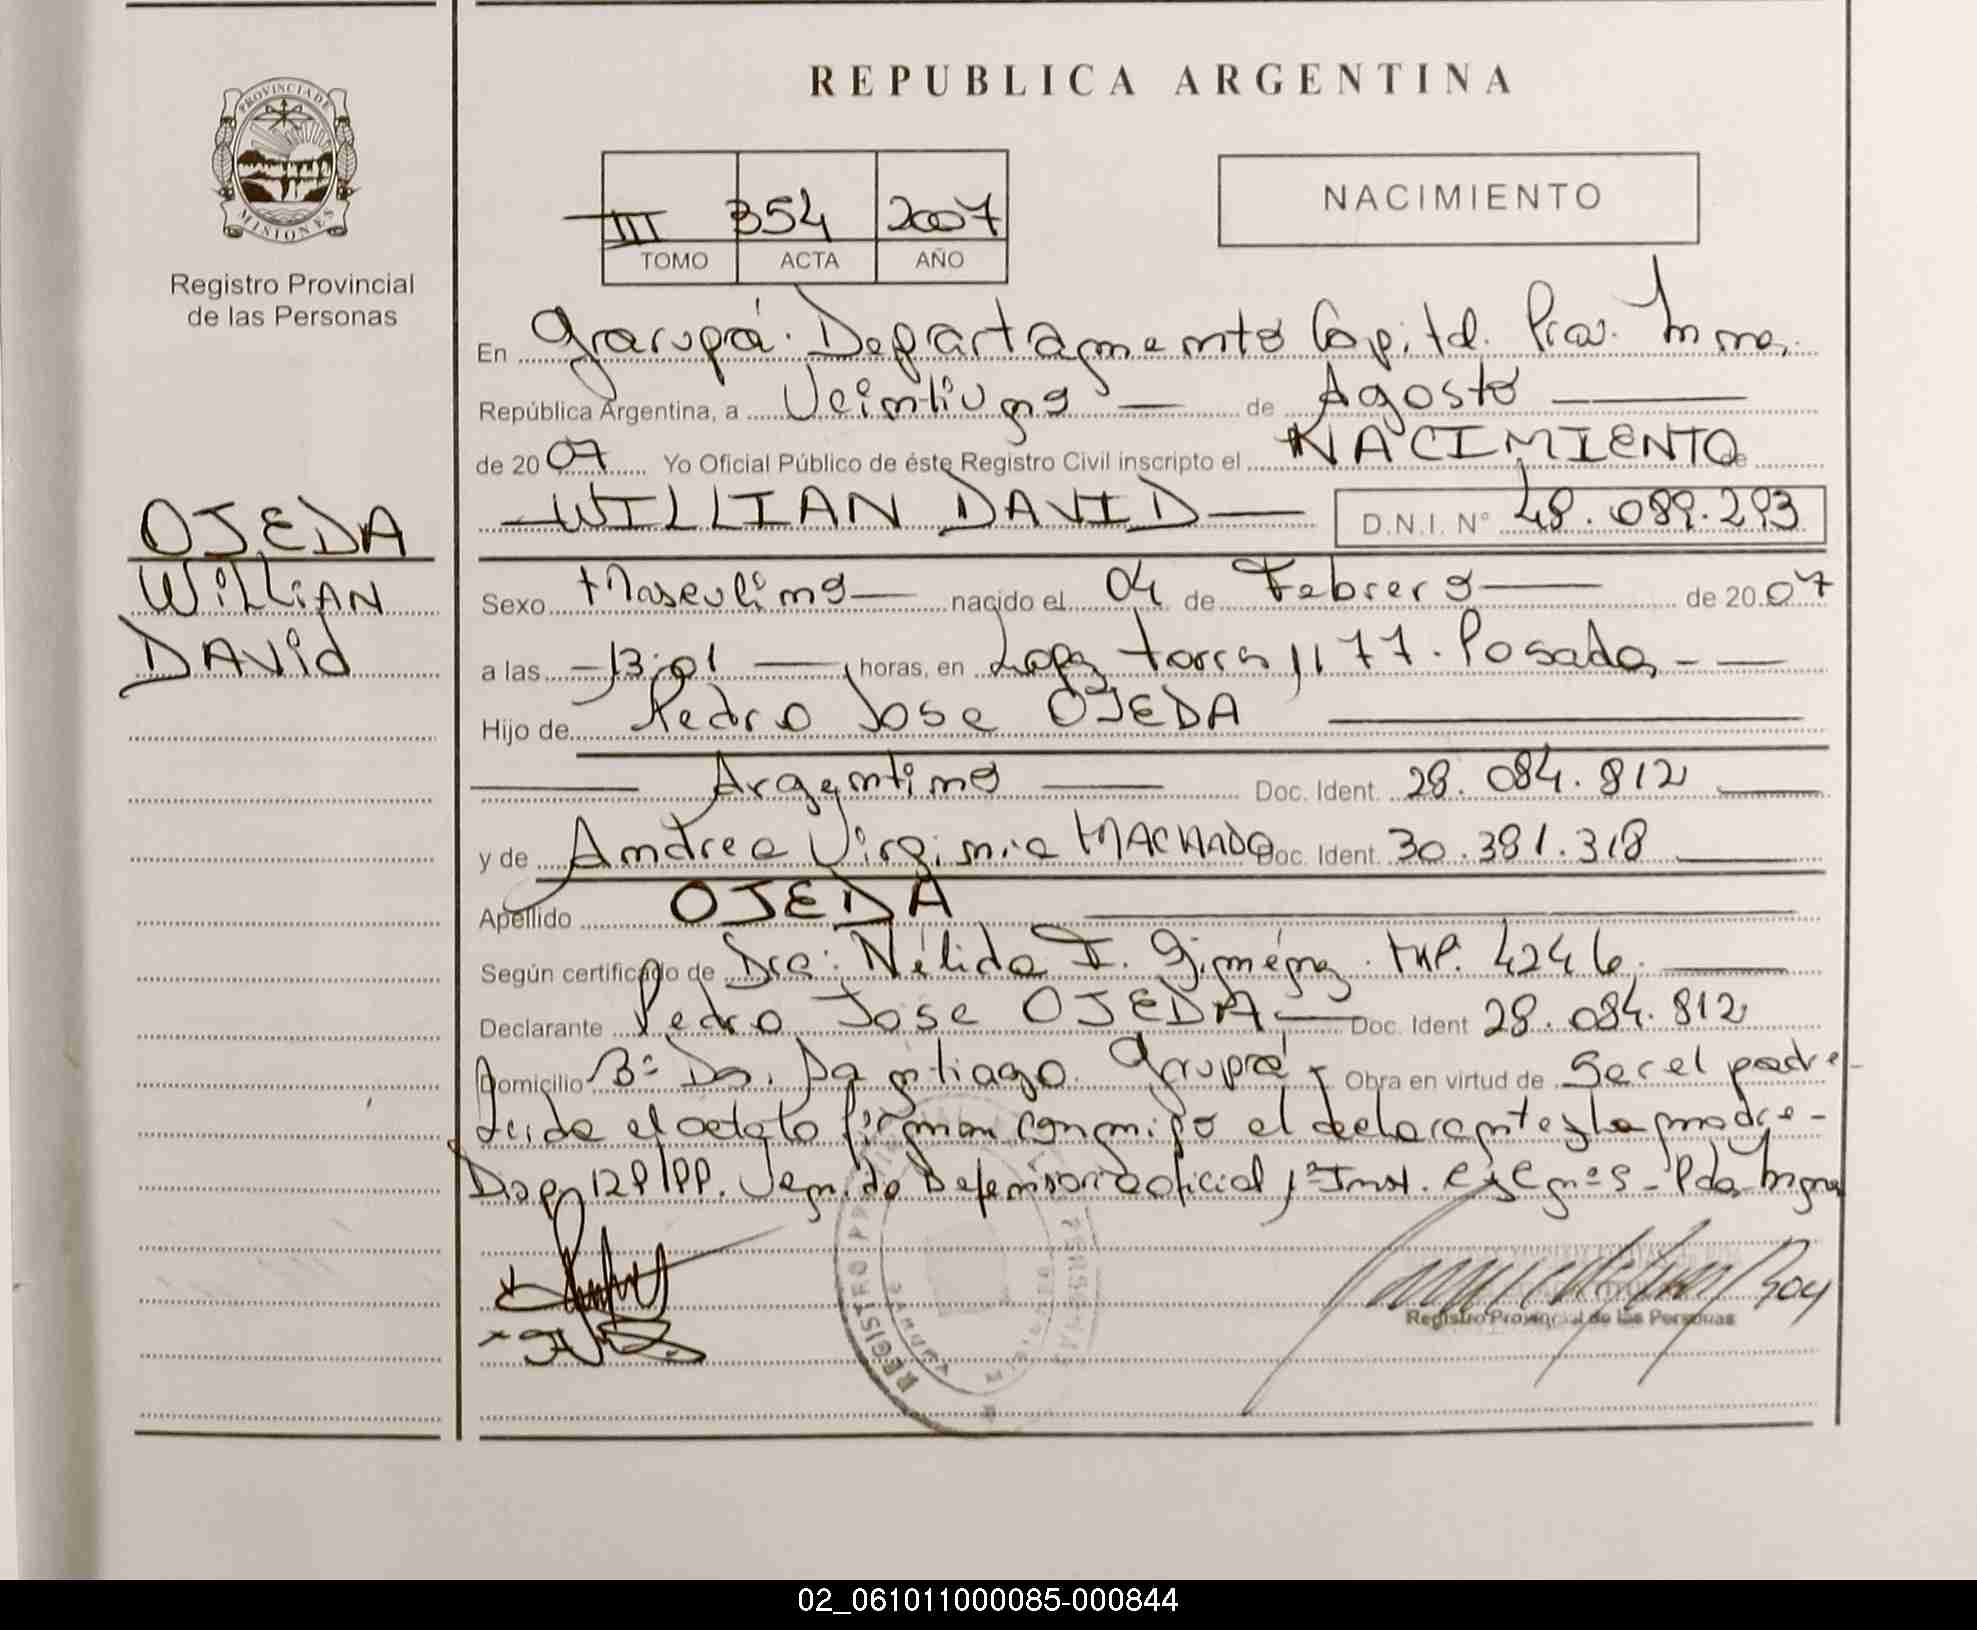 REPUBLICA ARGENTINA
PROVINCIA DE
MISIONES
Registro Provincial
de las Personas
III 354 2007
TOMO ACTA AÑO
NACIMIENTO
En Garupá. Departamento Capital. Prov. Mnes.
República Argentina, a Veintiuno de Agosto
de 2007 Yo Oficial Público de éste Registro Civil inscripto el NACIMIENTO de
WILLIAN DAVID D.N.I. N° 48.089.293
OJEDA
WilliAN
DAVid
Sexo Masculino nacido el 04 de Febrero de 2007
a las 13:01 horas, en Lopez Torres 1177. Posadas
Hijo de Pedro Jose OJEDA
Argentino Doc. Ident. 28.084.812
y de Andrea Virginia MACHADO Doc. Ident. 30.381.318
Apellido OJEDA
Según certificado de Dra: Nélida I. Giménez. M.P. 4246.
Declarante Pedro Jose OJEDA Doc. Ident 28.084.812
Domicilio B° Do. Santiago. Garupá Obra en virtud de Ser el padre-
Leida el acta lo firman conmigo el declarante y la madre-
RPP. Defensoria oficial 1ª Inst.
REGISTRO
Registro Provincial de las Personas
02_061011000085-000844